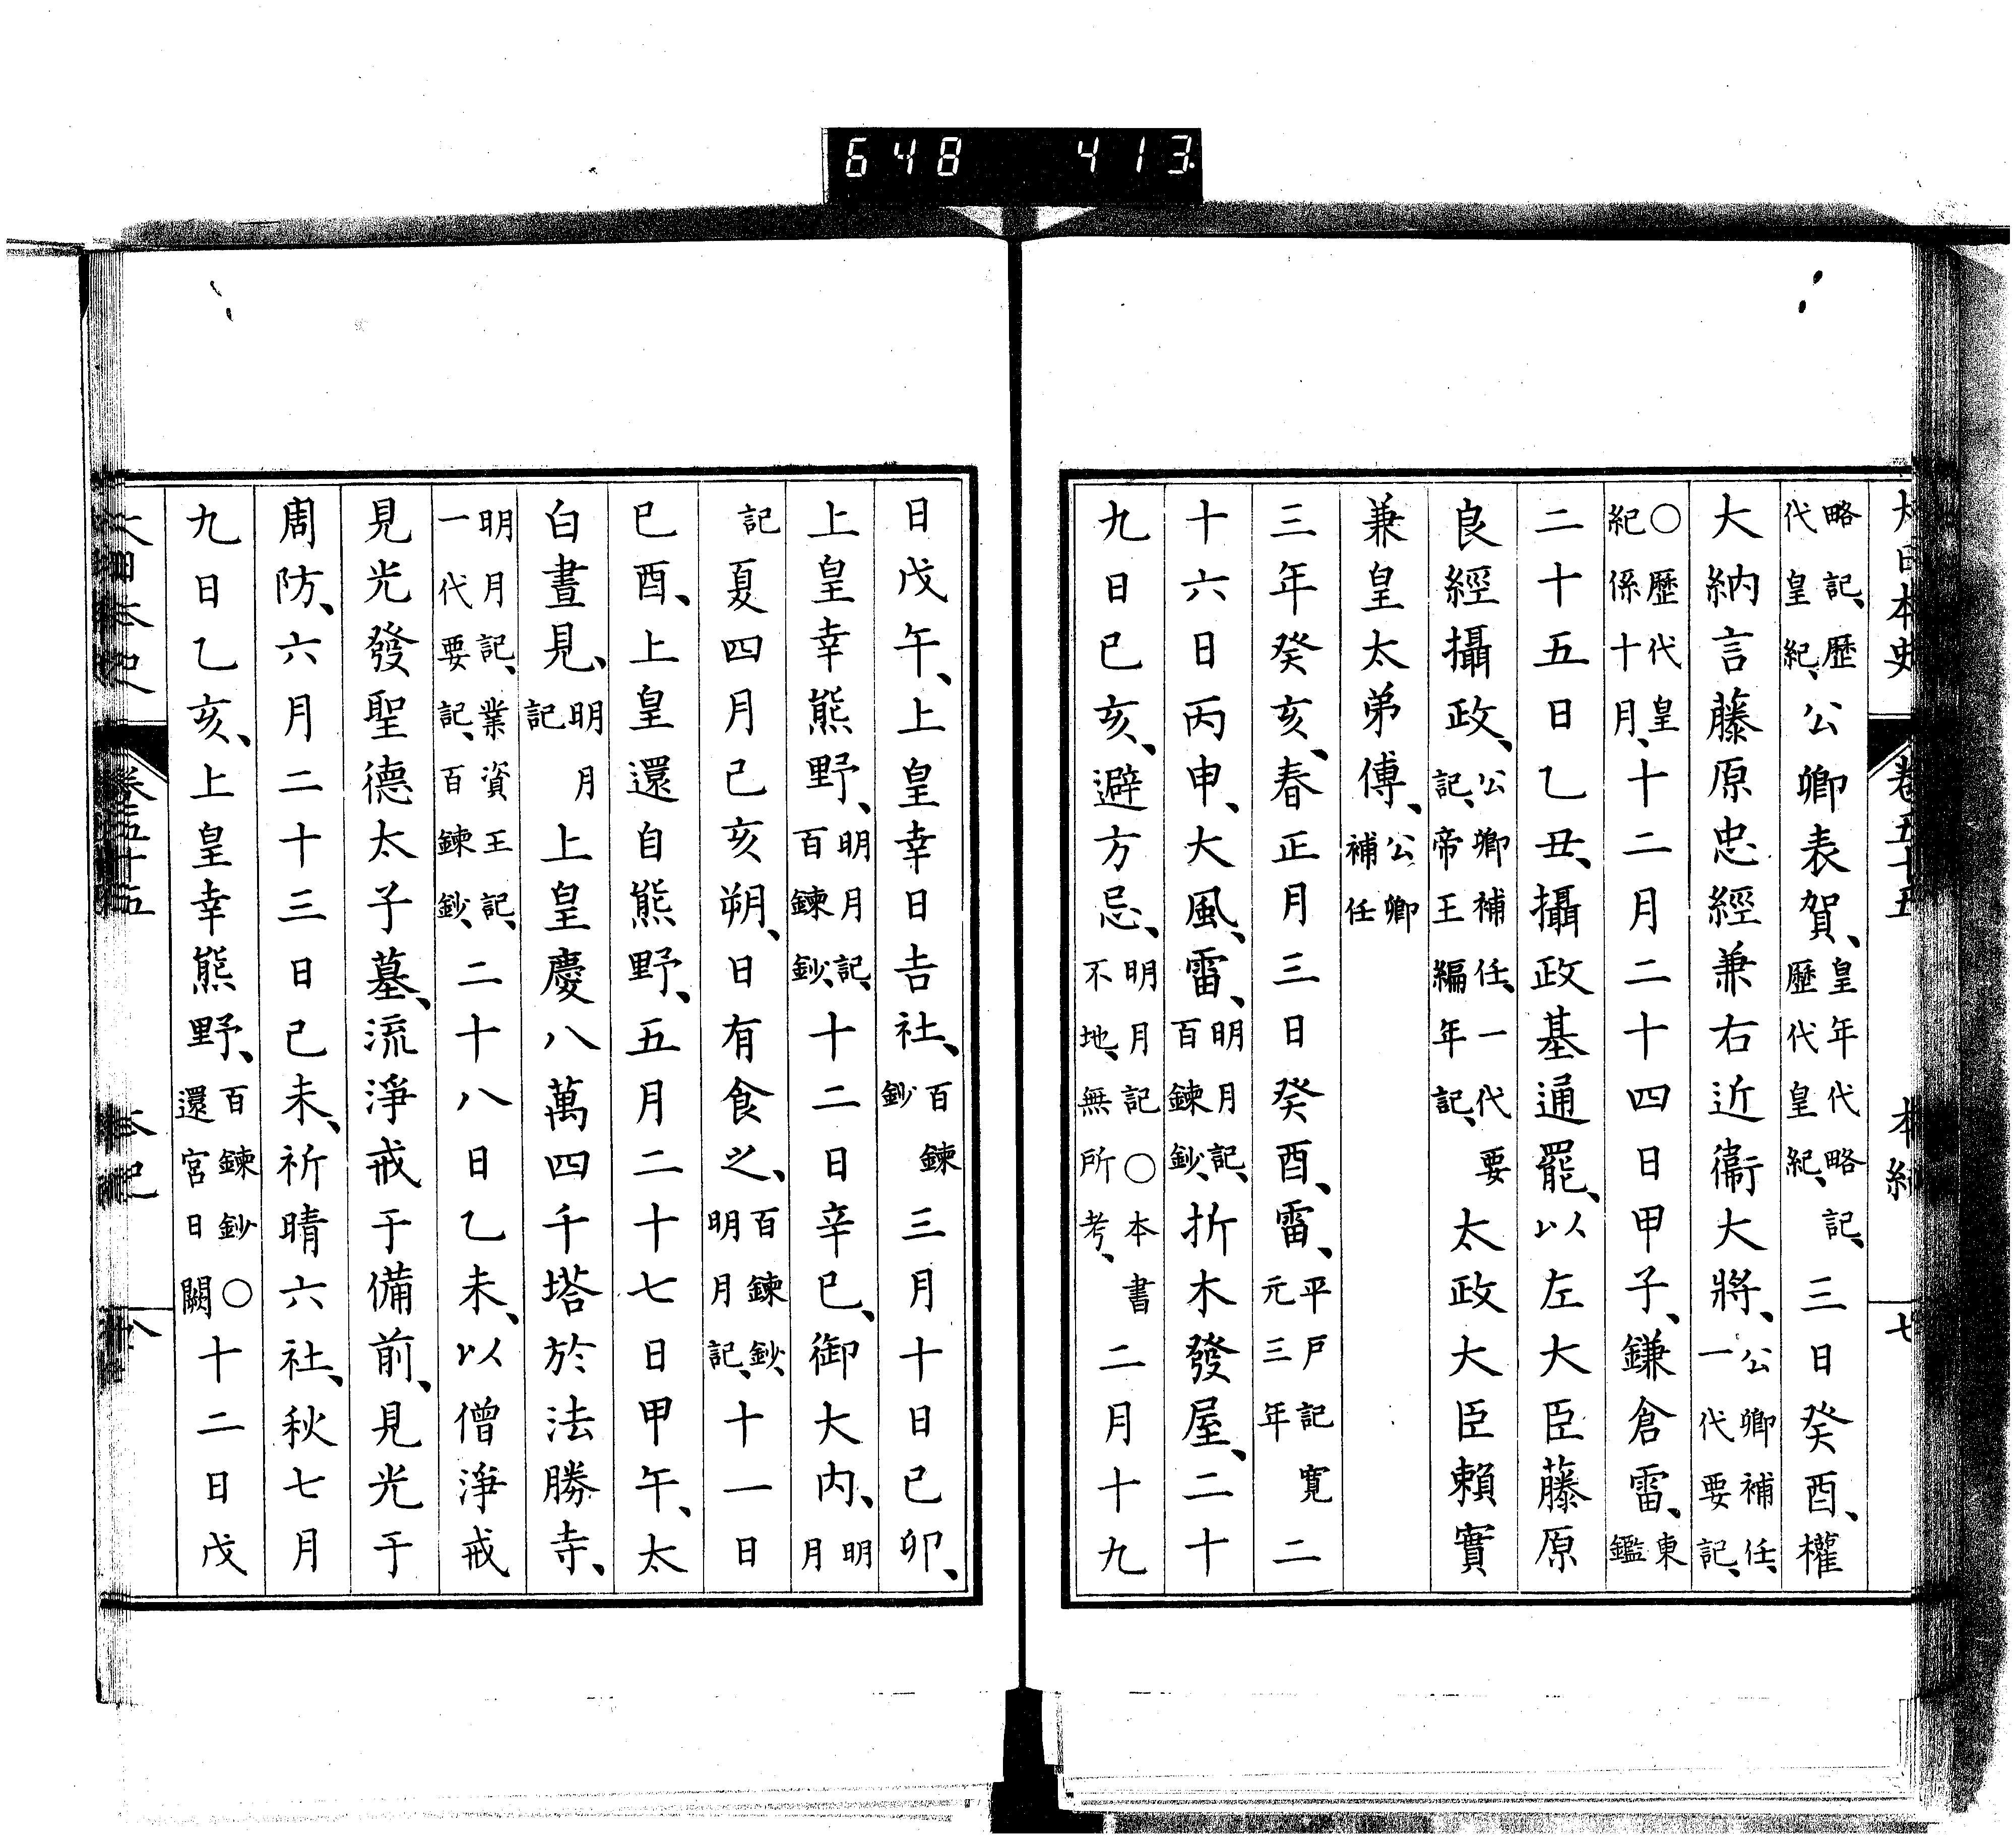 648 413
大日本史 卷五十五 本紀 七
略記、歷代皇紀、公卿表賀、皇年代略記、歷代皇紀、三日癸酉、權
大納言藤原忠經兼右近衞大將、公卿補任、一代要記、
○歷代皇紀係十月、十二月二十四日甲子、鎌倉雷、東鑑
二十五日乙丑、攝政基通罷、以左大臣藤原
良經攝政、公卿補任、一代要記、帝王編年記、太政大臣賴實
兼皇太弟傅、公卿補任
三年癸亥、春正月三日癸酉、雷、平戶記寬元三年二
十六日丙申、大風、雷、明月記、百鍊鈔、折木發屋、二十
九日己亥、避方忌、明月記○本書不地、無所考、二月十九
日戊午、上皇幸日吉社、百鍊鈔三月十日己卯、
上皇幸熊野、明月記、百鍊鈔、十二日辛巳、御大內、明月
記夏四月己亥朔、日有食之、百鍊鈔、明月記、十一日
己酉、上皇還自熊野、五月二十七日甲午、太
白晝見、明月記上皇慶八萬四千塔於法勝寺、
明月記、業資王記、一代要記、百鍊鈔、二十八日乙未、以僧淨戒
見光發聖德太子墓、流淨戒于備前、見光于
周防、六月二十三日己未、祈晴六社、秋七月
九日乙亥、上皇幸熊野、百鍊鈔○還宮日闕十二日戊
大日本史 卷五十五 本紀 八